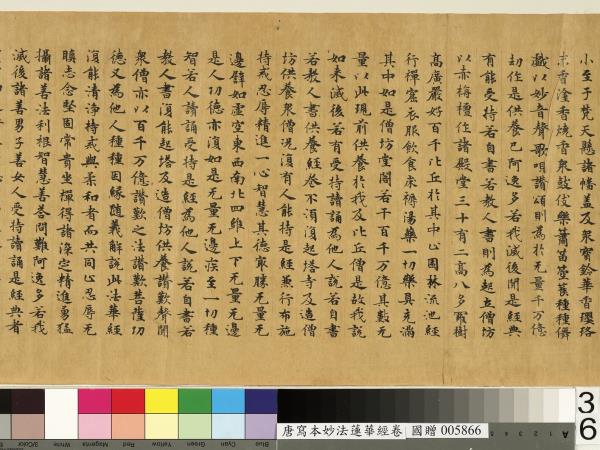 小至于梵天懸諸幡蓋及眾寶鈴華香瓔珞
末香塗香燒香眾鼓伎樂簫笛箜篌種種儛
戲以妙音聲歌唄讚頌則為於无量千万億
劫作是供養已阿逸多若我滅後聞是經典
有能受持若自書若教人書則為起立僧坊
以赤栴檀作諸殿堂三十有二高八多羅樹
高廣嚴好百千比丘於其中止園林流池經
行禪窟衣服飲食床褥湯藥一切樂具充滿
其中如是僧坊堂閣若干百千万億其數无
量以此現前供養於我及比丘僧是故我說
如來滅後若有受持讀誦為他人說若自書
若教人書供養經卷不須復起塔寺及造僧
坊供養眾僧況復有人能持是經兼行布施
持戒忍辱精進一心智慧其德寂勝无量无
邊譬如虛空東西南北四維上下无量无邊
是人功德亦復如是无量无邊疾至一切種
智若人讀誦受持是經為他人說若自書若
教人書復能起塔及造僧坊供養讚歎聲聞
眾僧亦以百千万億讚歎之法讚歎菩薩功
德又為他人種種因緣隨義解說此法華經
復能清淨持戒與柔和者而共同止忍辱无
瞋志念堅固常貴坐禪得諸深定精進勇猛
攝諸善法利根智慧善答問難阿逸多若我
滅後諸善男子善女人受持讀誦是經典者
3/Color White Magenta Red Yellow Green Cyan Blue
唐寫本妙法蓮華經卷 國贈 005866
A 1 2 3 4 5
36